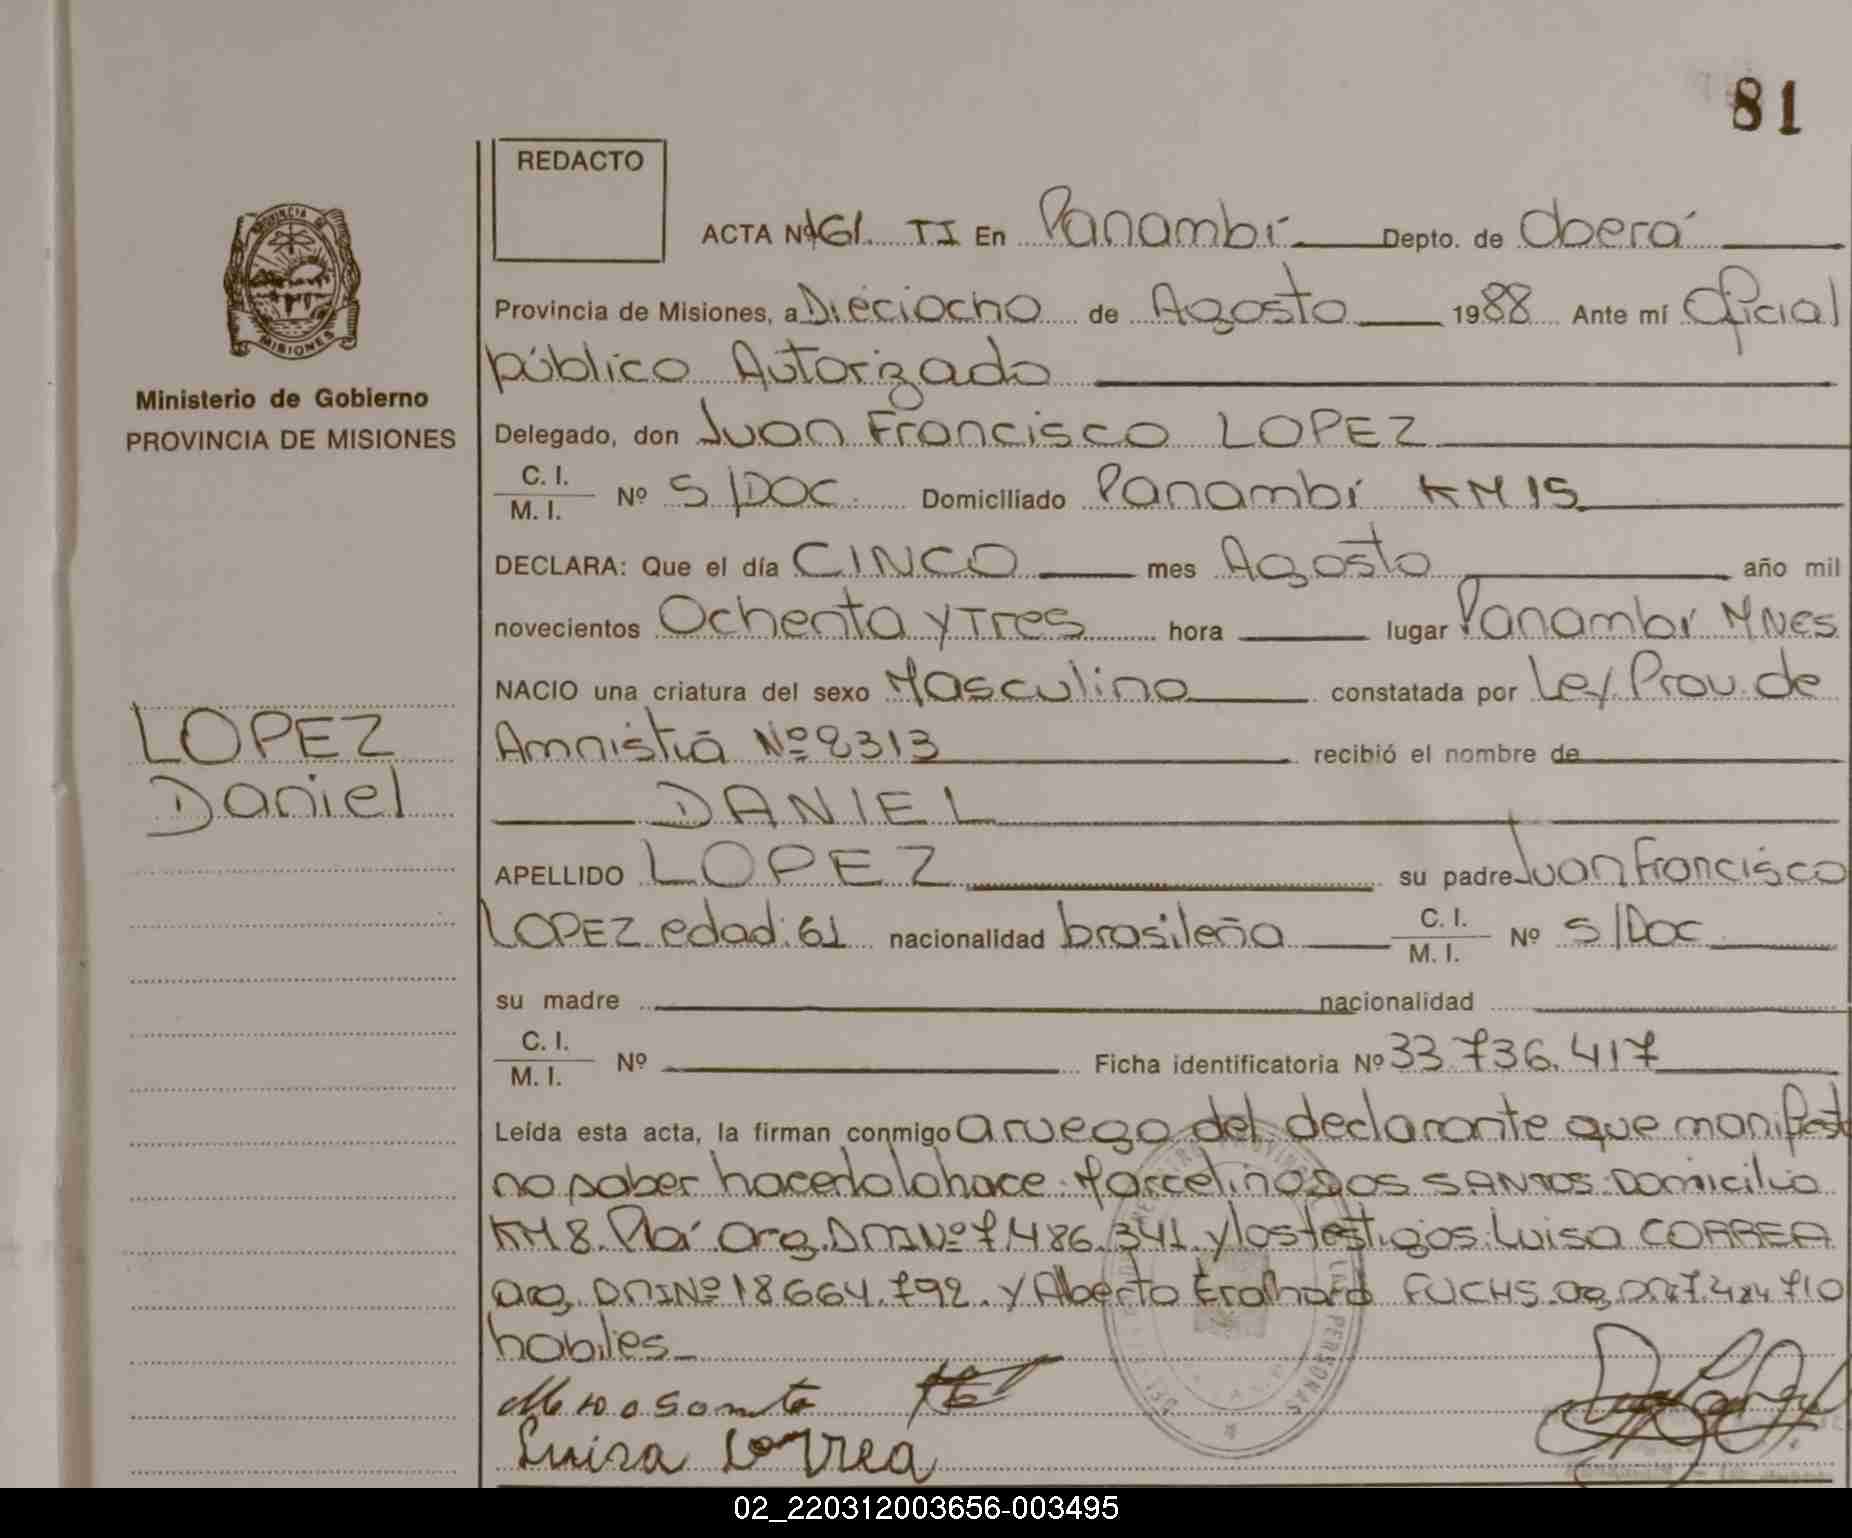 81
REDACTO
ACTA Nº 161 TI En Panambí Depto. de Oberá
Provincia de Misiones, a Dieciocho de Agosto 1988 Ante mí Oficial
público Autorizado
Delegado, don Juan Francisco LOPEZ
C. I.
M. I. Nº S/DOC. Domiciliado Panambí KM 15
DECLARA: Que el día CINCO mes Agosto año mil
novecientos Ochenta y Tres hora lugar Panambí MNes
NACIO una criatura del sexo Masculino constatada por Ley Prov. de
Amnistía Nº 2313 recibió el nombre de
DANIEL
APELLIDO LOPEZ su padre Juan Francisco
LOPEZ edad: 61 nacionalidad brasileña C. I.
M. I. Nº S/Doc
su madre nacionalidad
C. I.
M. I. Nº Ficha identificatoria Nº 33.736.417
Leída esta acta, la firman conmigo a ruego del declarante que manifestó
no saber hacerlo lo hace: Marcelino DOS SANTOS Domicilio
KM 8. Arg. DNI Nº 7.486.341. y los testigos: Luisa CORREA
arg. DNI Nº 18.664.792. y Alberto FUCHS arg. 710
habiles
Luisa Correa
PROVINCIA DE
MISIONES
Ministerio de Gobierno
PROVINCIA DE MISIONES
LOPEZ
Daniel
02_220312003656-003495